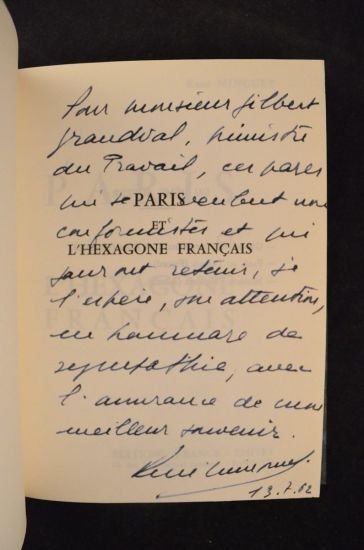 Pour monsieur Gilbert
Grandval, ministre
du Travail, ces pages
qui se veulent non
PARIS
conformistes et qui
ET
L'HEXAGONE FRANÇAIS
sauront retenir, je
l'espère, son attention,
en hommage de
sympathie, avec
l'assurance de mon
meilleur souvenir.
13.7.62